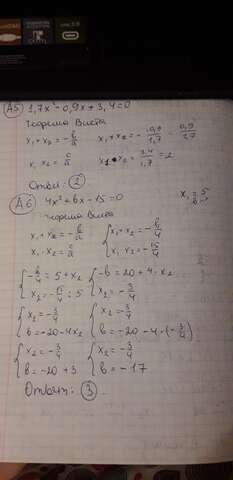 А5 1,7x² - 0,9x + 3,4 = 0
Теорема Виета
x₁ + x₂ = -b/a x₁ + x₂ = - -0,9/1,7 = 0,9/1,7
x₁ x₂ = c/a x₁ • x₂ = 3,4/1,7 = 2
Ответ: 2
А6 4x² + bx - 15 = 0 x₁ = 5
Теорема Виета b -
x₁ + x₂ = -b/a { x₁ + x₂ = -b/4
x₁ x₂ = c/a x₁ x₂ = -15/4
{ -b/4 = 5 + x₂ { -b = 20 + 4 · x₂
x₂ = -15/4 : 5 x₂ = -3/4
{ x₂ = -3/4 { x₂ = -3/4
b = -20 - 4x₂ b = -20 - 4 · (-3/4)
{ x₂ = -3/4 { x₂ = -3/4
b = -20 + 3 b = -17
Ответ: 3